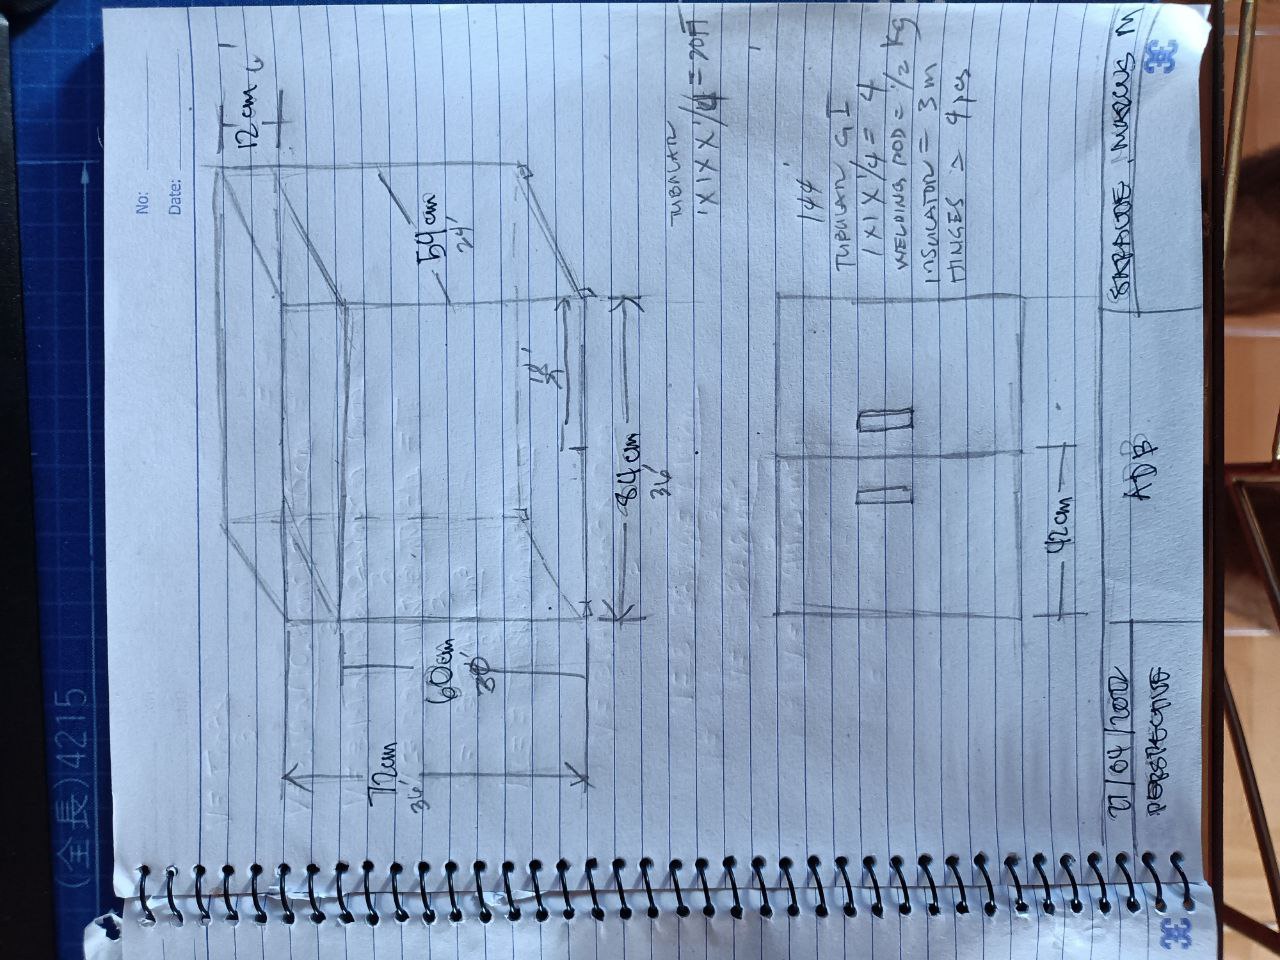 No:
Date:
12cm
54cm
24'
18'
84cm
36'
60cm
30'
72cm
36'
TUBULAR
1X1X1/4 = 20FT
144'
TUBULAR GI
1X1X1/4 = 4
WELDING ROD = 1/2 kg
INSULATOR = 3 m
HINGES = 4 pcs
42cm
MARCUS M
ADB
21/04/2022
PERSPECTIVE
(全長)4215